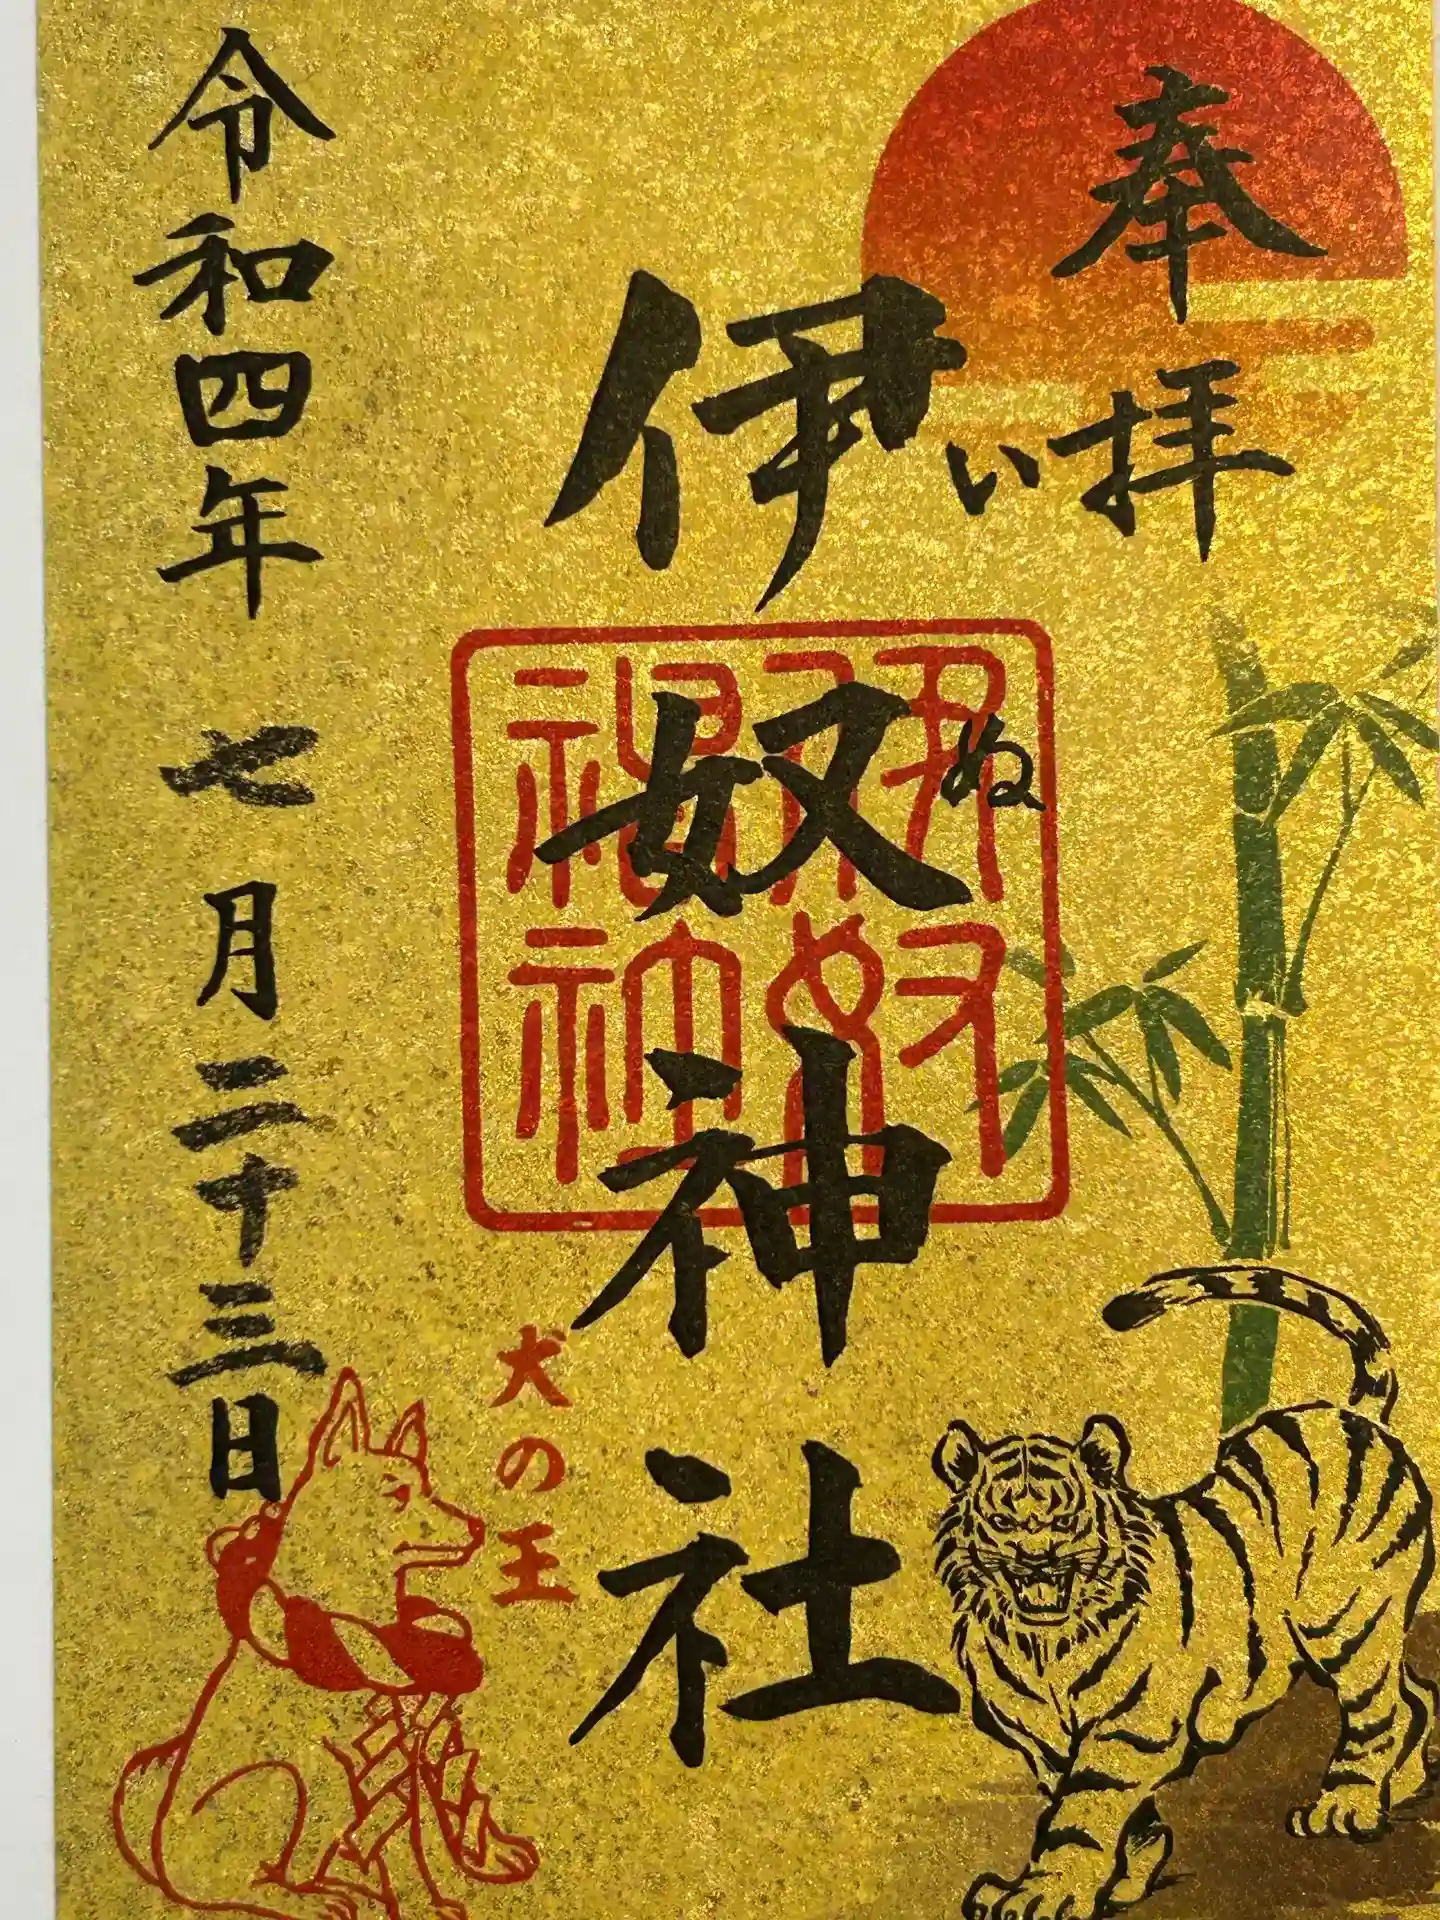 奉拝
伊奴神社
いぬ
伊奴神社
犬の王
令和四年七月二十三日